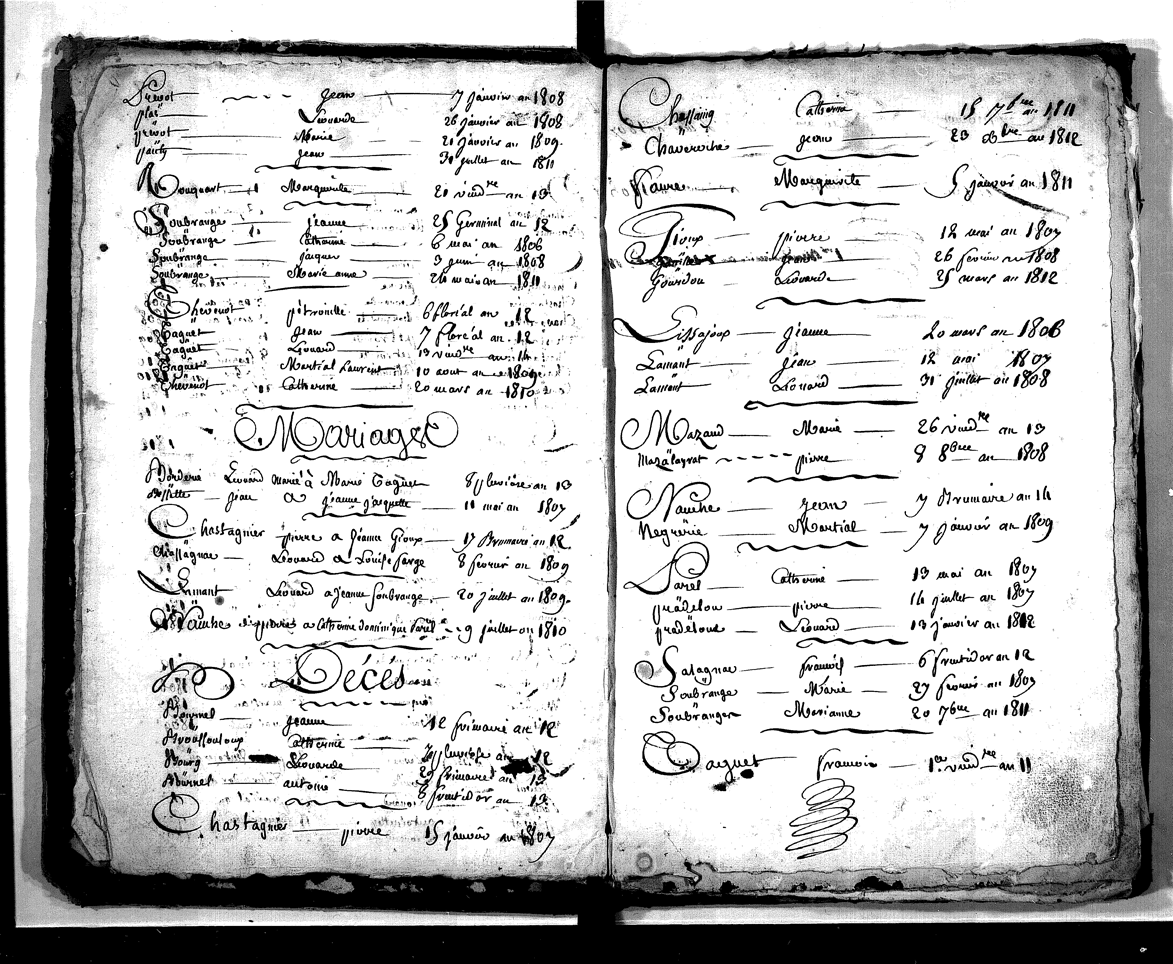 Prevot Jean 7 janvier an 1808
plas Léonarde 26 janvier an 1808
prevot Marie 21 janvier an 1809.
jean 31 juillet an 1811
Rouquart Marguerite 21 vend^re an 13
Soubrange jeanne 25 Germinal an 12
Soubrange Catherine 6 mai an 1806
Soubrange jacques 3 juin an 1808
Soubrange Marie anne 24 mars an 1811
Thévenot pétronille 6 floréal an 12
Taguet jean 7 floréal an 12
Taguet Léonard 13 vend^re an 14
Taguet Martial Laurent 10 aout an 1809
Thevenot Catherine 20 mars an 1810
Mariages
Borderie Léonard marié à Marie Taguet 8 pluviôse an 13
jean a jeanne jarquette 11 mai an 1807
Chastagnier pierre a Jeanne Gioux 17 Brumaire an 12
Chassagnac Léonard a Louise farge 8 fevrier an 1809
Lamant Léonard a Jeanne Soubrange 20 juillet an 1809.
Nauche pierre a Catherine dominique 9 juillet an 1810
Décés
B
Bournel jeanne 12 frimaire an 12
Broussouloux Catherine an 12
Bourg Léonarde 29 frimaire an 13
Bournel antoine 8 fructidor an 13
Chastagnier pierre 15 janvier an 1807
Chassaing Catherine 15 7^bre an 1811
Chaveroche jean 23 Xbre an 1812
Faure Marguerite 5 janvier an 1811
Gioux pierre 12 mai an 1807
26 fevrier an 1808
Gourdou Léonarde 25 mars an 1812
Lissajoux jeanne 20 mars an 1806
Lamant jean 12 mai 1807
Lamant Léonard 31 juillet an 1808
Mazaud Marie 26 vend^re an 13
Mazalayrat pierre 8 8bre an 1808
Nauche jean 7 Brumaire an 14
Negrerie Martial 7 janvier an 1809
Parel Catherine 13 mai an 1807
pradelou pierre 14 juillet an 1807
pradeloue Léonard 13 janvier an 1812
Salagnac françois 6 fructidor an 12
Soubrange Marie 27 fevrier an 1807
Soubrange Marianne 20 7bre an 1811
Taguet françois 1er vend^re an 11